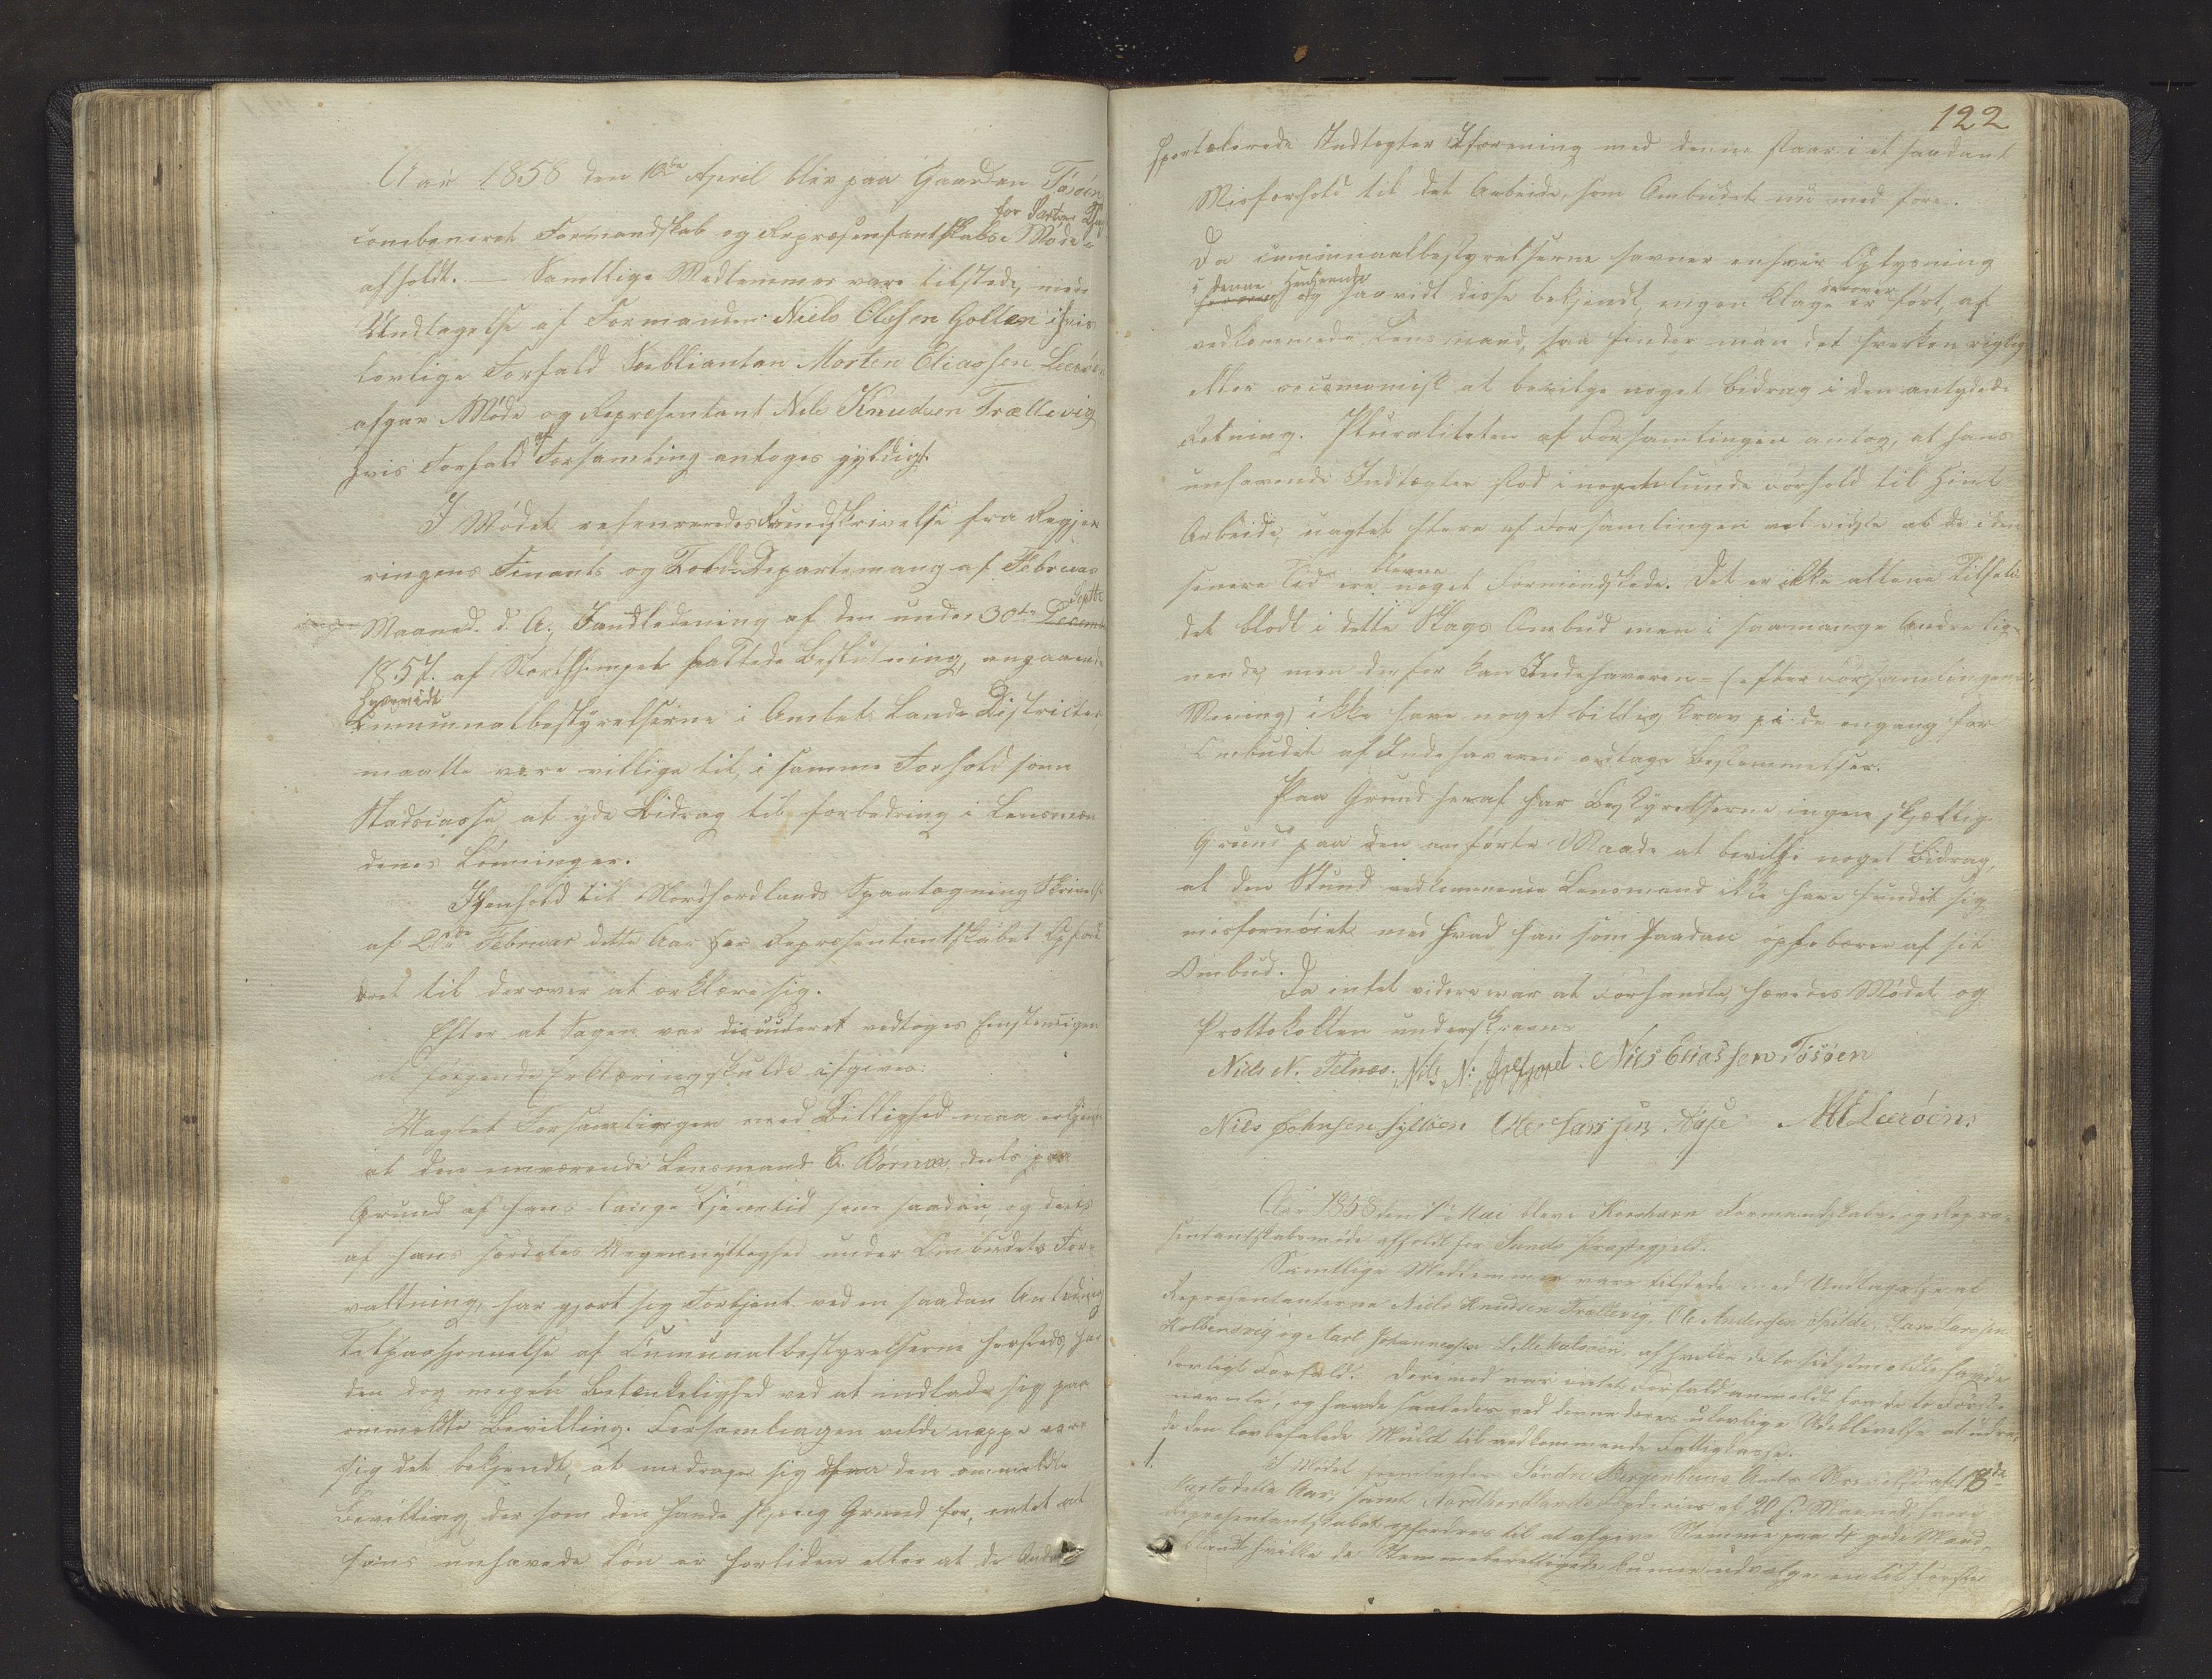 Aar 1858 den 10de April blev paa Gaarden Tösöen
for Sartors Thl
combeneret Formandskab og Repræsentantskabs Møde
afholdt. — Samtlige Medlemmer vare tilstede, med
Undtagelse af Formanden Niels Olsen Golten i hvis
lovlige Forfald Subliantan Morten Eliassen Leeröen
afgav Møde og Repræsentant Nils Knudsen Trællevig
hvis Forfald af Forsamling antoges gyldigt.
I Mødet refenreredes Rundskrivelse fra Regje-
ringens Finants og Told-Departemang af Februar
Maaned d. A., I andledening af den under 30te Decemb Septbr
1857. af Storthinget fattede Beslutning, angaaende
hvorvidt
Cumunalbestyrelserne i Amtets Lande Districter
maatte være villige til, i samme Forhold som
Stadscasse at yde Bidrag til forbedring i Lensmæn
denes Lønninger.
I Henhold til Nordhordlands Skrivelse
af Februar dette Aar har Repræsentantskabet Opford
dret til derover at erklære sig.
Efter at Sagen var discuteret vedtoges Eenstemigen
at følgende Erklæring skulde afgives:
Uagtet Forsamlingen med Billighed maa erkjende
at den nuværende Lensmand dels paa
Grund af hans lange Tjenetid som saadan, og deels
af hans under Ombudets For-
valtning, har gjort sig Fortjent ved en saadan Anledning
af Cumunalbestyrelserne hersteds har
den dog megen Betænkelighed ved at indlade sig paa
ommeldte Bevilling. Forsamlingen vilde neppe være
sig det bekjendt, at unddrage sig fra den ommeldte
Bevilling der som den havde Grund for, entet at
hans unhavede Løn er forliden eller at de Andre
122
sportelerede Indtegter Iforening med denne staar i et saadant
Misforhold til det Arbeide, som Ombudet nu med fører.
Da cumunalbestyrelserne savner enhver Oplysning
i denne Henseende og saavidt disse bekjendt, ingen Klage derover er ført, af
vedkommende Lensmand, saa finder man det hverken rigtig
eller oeconomisk at bevilge noget Bidrag i den antydede
Retning. Pluraliteten af Forsamlingen antog, at hans
unhavende Indtægter stod i nogenlunde Forhold til hint
Arbeide, uagtet flere af Forsamlingen vel vidste at de i den
senere Tid ere blevne noget Formindskede. Det er ikke allene Tilfelde
det blodt i dette Slags Ombud men i saamange Andre lig-
nende, men derfor kan Indehaveren = (efter Forsamlingens
Mening) ikke have noget billig Krav paa de engang for
Ombudet af Indehaveren vedtage Bestemmelser.
Paa Grund heraf har Bestyrelserne ingen skjellig
Grund paa den anførte Maade at bevilge noget Bidrag,
al den Stund vedkommende Lensmand ikke have fundet sig
misfornøiet med hvad han som saadan oppebærer af sit
Ombud.
Da intet videre var at Forhandle, hævedes Mødet og
Prottokollen underskreven
Niels N. Telnæs. Nils N: . Nils Eliassen Tösöen
Nils Johnsen Syltöen Ole Larssen Aase MELeeröen.
Aar 1858 den 7de Mai blev i Korshavn Formandskabs og Repræ-
sentantskabsmøde afholdt for Sunds Præstegjeld.
Samtlige Medlemmer vare tilstede med Undtagelse af
Repræsentanterne Niels Knudsen Trællevig, Ole Andersen Spilde, Lars Larsen
Kolbensvig og Karl Johannessen Lille Kalsöen, af hvilke de to sidstmeldte havde
lovligt Forfald. Derimod var intet Forfald anmeldt fra de to Først-
nævnte, og havde saaledes ved denne deres ulovlige Udeblivelse at udrede
de den lovbefalede Mulct til vedkommende Fattigkasse.
1. I Mødet fremlagdes Søndre Bergenhuus Amts Skrivelse af 18de
Marts dette Aar, samt Nordhordlands Fogderies af 20 f. Maaned, hvori
Repræsentantskabet opfordres til at afgive Stemme paa 4 gode Mænd
blandt hvilke de Stemmeberettigede kunne udvælge en til første